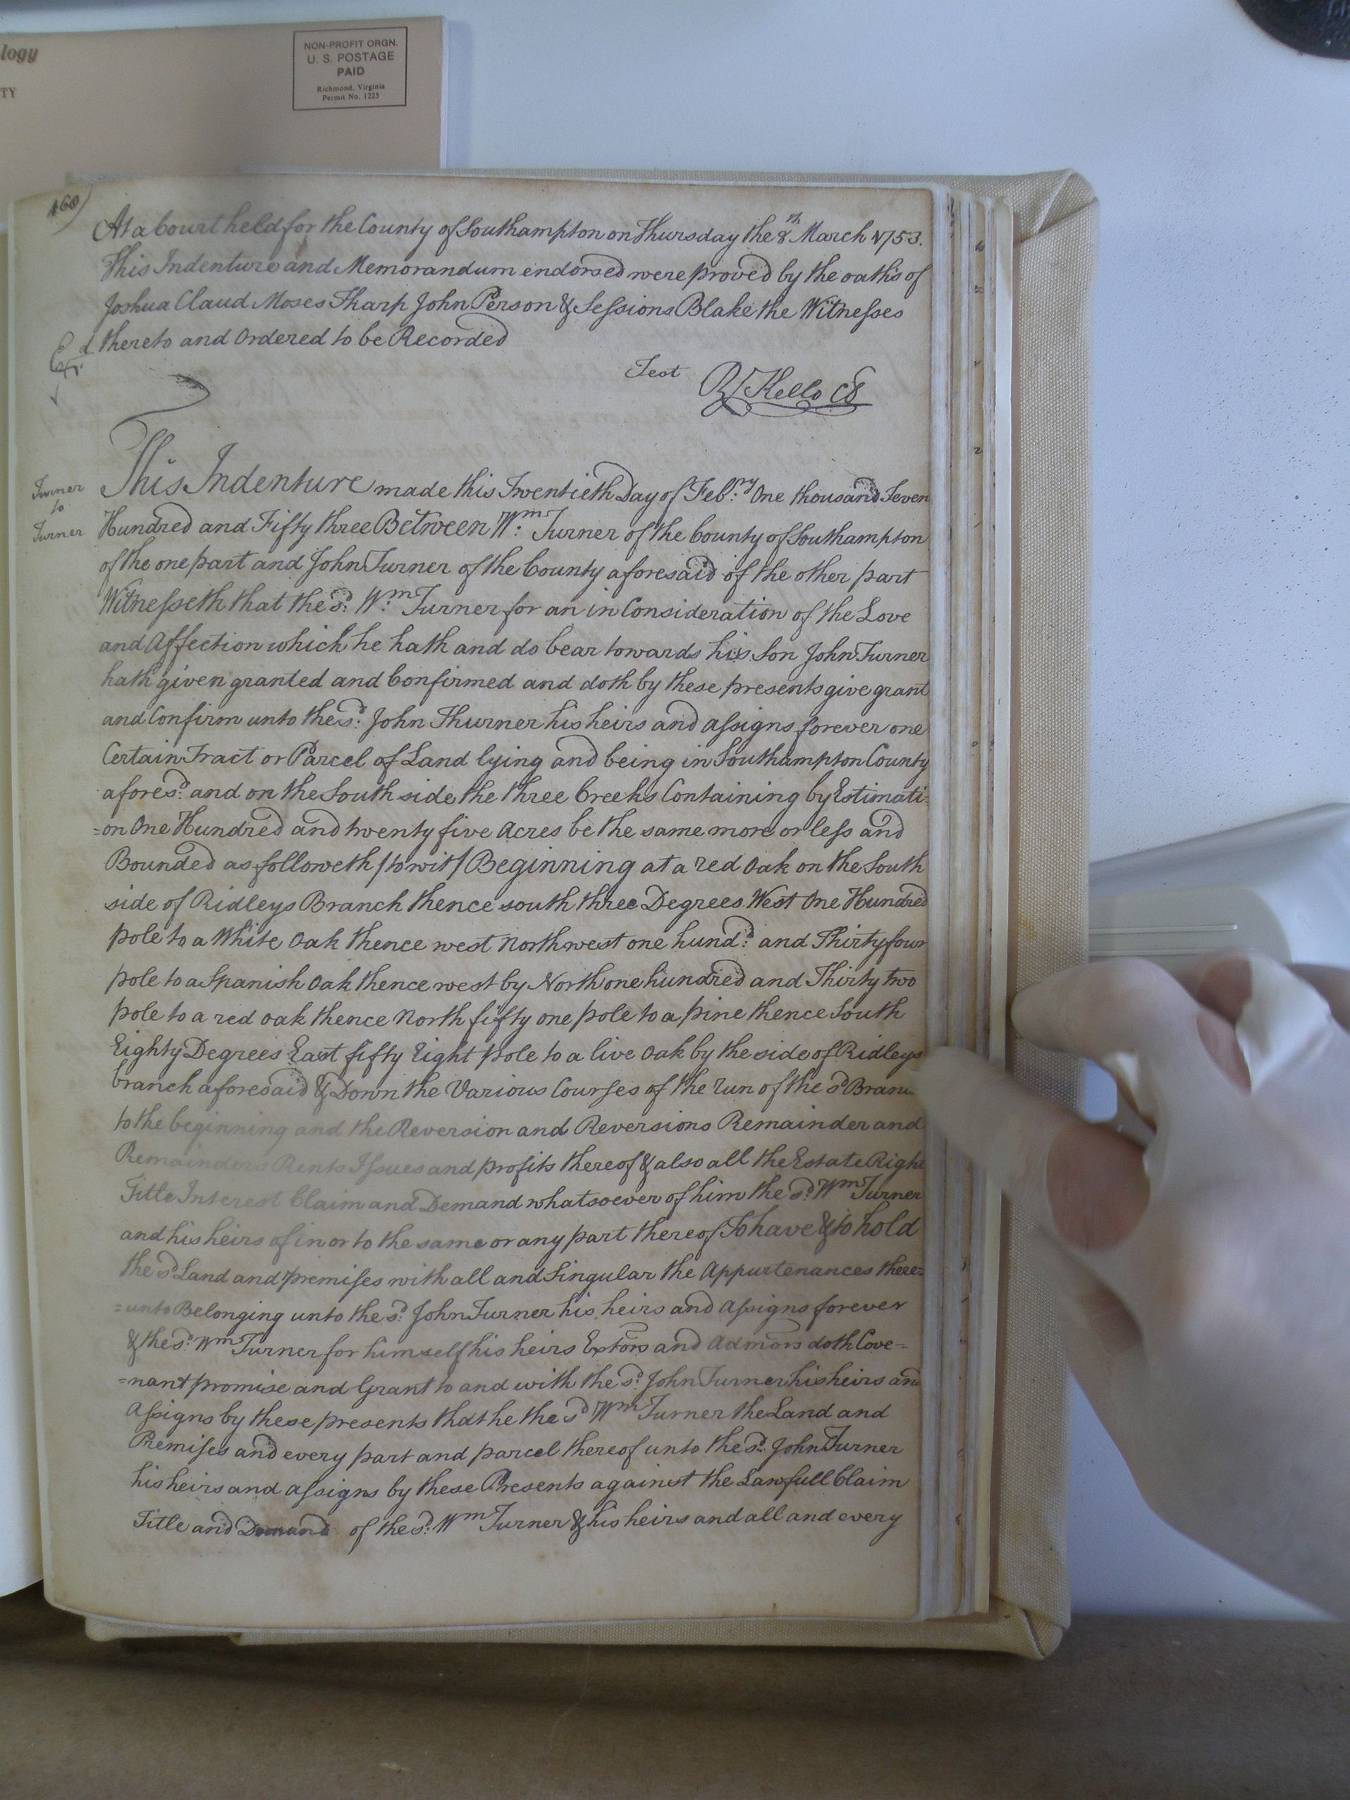 logy
TY
NON-PROFIT ORGN.
U. S. POSTAGE
PAID
Richmond, Virginia
Permit No. 1225
460)
At a Court held for the County of Southampton on Thursday the 8th March 1753.
This Indenture and Memorandum endorsed were proved by the oaths of
Joshua Claud Moses Tharp John Person & Sessions Blake the Witnesses
thereto and Ordered to be Recorded
Test
Exd
Rd Kello CS
Turner
to
Turner
This Indenture made this Twentieth Day of Feb:ry One thousand Seven
Hundred and Fifty three Between Wm: Turner of the County of Southampton
of the one part and John Turner of the County aforesaid of the other part
Witnesseth that the sd: Wm: Turner for an in Consideration of the Love
and Affection which he hath and do bear towards his Son John Turner
hath given granted and Confirmed and doth by these presents give grant
and Confirm unto the sd: John Thurner his heirs and assigns forever one
Certain Tract or Parcel of Land lying and being in Southampton County
aforesd: and on the South side the three Creeks Containing by Estimati-
=on One Hundred and twenty five Acres be the same more or less and
Bounded as followeth /to wit/ Beginning at a red Oak on the South
side of Ridleys Branch thence south three Degrees West One Hundred
pole to a White Oak thence west Northwest one hundd: and Thirty four
pole to a Spanish Oak thence west by North one hundred and Thirty two
pole to a red Oak thence North fifty one pole to a pine thence South
Eighty Degrees East fifty Eight pole to a live Oak by the side of Ridleys
branch aforesaid & Down the Various Courses of the run of the sd Bran
to the beginning and the Reversion and Reversions Remainder and
Remainders Rents Issues and profits thereof & also all the Estate Right
Title Interest Claim and Demand whatsoever of him the sd: Wm Turner
and his heirs of in or to the same or any part thereof To have & to hold
the sd: Land and premises with all and Singular the Appurtenances there=
=unto Belonging unto the sd: John Turner his heirs and Assigns forever
& the sd: Wm Turner for himself his heirs Extors and Admors doth Cove=
=nant promise and Grant to and with the sd: John Turner his heirs and
Assigns by these presents that he the sd Wm Turner the Land and
Premises and every part and parcel thereof unto the sd: John Turner
his heirs and assigns by these Presents against the Lawfull Claim
Title and Demand of the sd: Wm Turner & his heirs and all and every